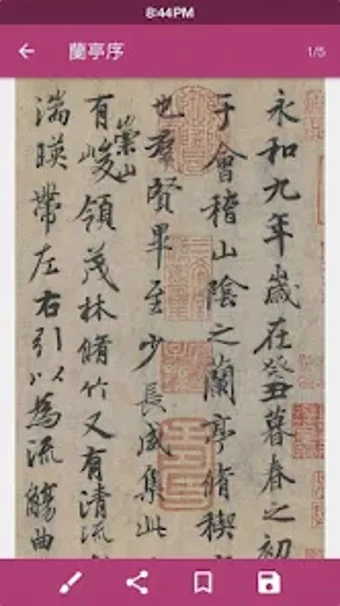 8:44PM
蘭亭序
1/5
永和九年歲在癸丑暮春之初
于會稽山陰之蘭亭脩稧
也羣賢畢至少長咸集此
有崇山峻領茂林脩竹又有清流
湍暎帶左右引以為流觴曲